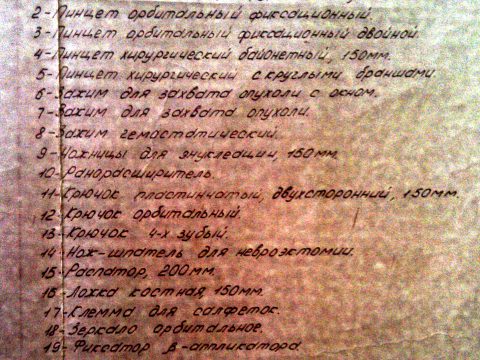 2-Пинцет орбитальный фиксационный.
3-Пинцет орбитальный фиксационный двойной.
4-Пинцет хирургический байонетный, 150мм.
5-Пинцет хирургический с круглыми браншами.
6-Зажим для захвата опухоли с окном.
7-Зажим для захвата опухоли.
8-Зажим гемостатический.
9-Ножницы для энуклеации, 150мм.
10-Ранорасширитель.
11-Крючок пластинчатый, двухсторонний, 150мм.
12-Крючок орбитальный.
13-Крючок 4-х зубый.
14-Нож-шпатель для невроэктомии.
15-Распатор, 200мм.
16-Ложка костная, 150мм.
17-Клемма для салфеток.
18-Зеркало орбитальное.
19-Фиксатор β-аппликатора